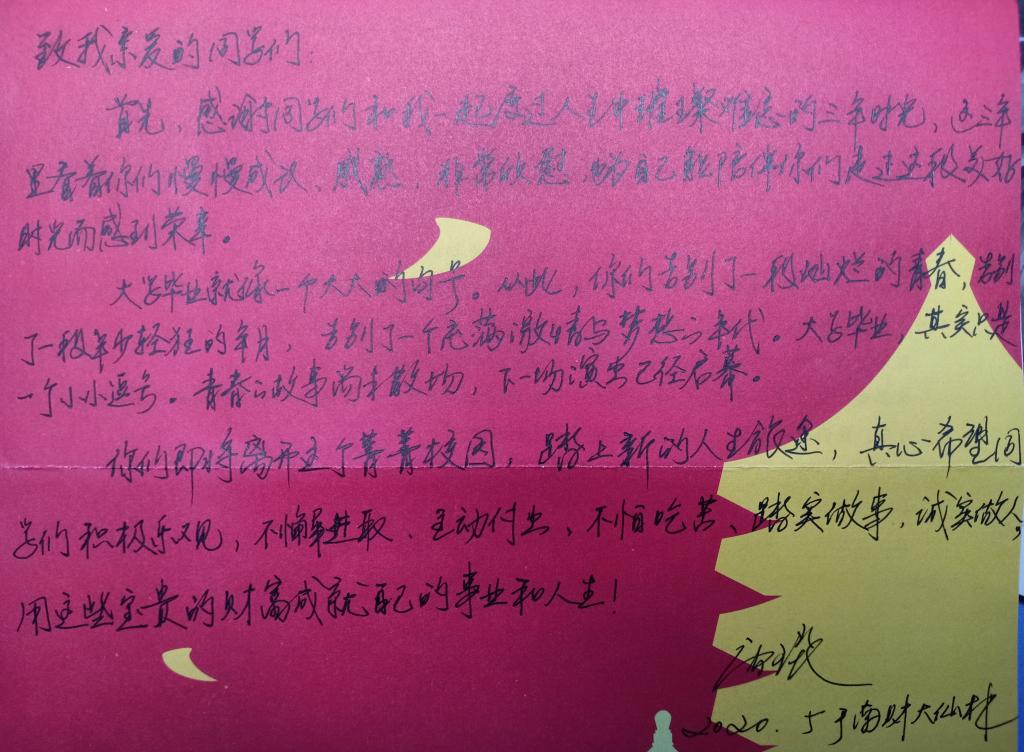 致我亲爱的同学们:
首先,感谢同学们和我一起度过人生中璀璨难忘的三年时光,这三年
里看着你们慢慢成长、成熟,非常欣慰,也为自己能陪伴你们走过这段美好
时光而感到荣幸。
大学毕业就像一个大大的句号。从此,你们告别了一段灿烂的青春,告别
了一段年少轻狂的年月,告别了一个充满激情与梦想的年代。大学毕业,其实只是
一个小小逗号。青春的故事尚未散场,下一场演出已经启幕。
你们即将离开这个菁菁校园,踏上新的人生旅途,真心希望同
学们积极乐观,不懈进取、主动付出、不怕吃苦、踏实做事,诚实做人,
用这些宝贵的财富成就自己的事业和人生!
2020.5于南财大仙林